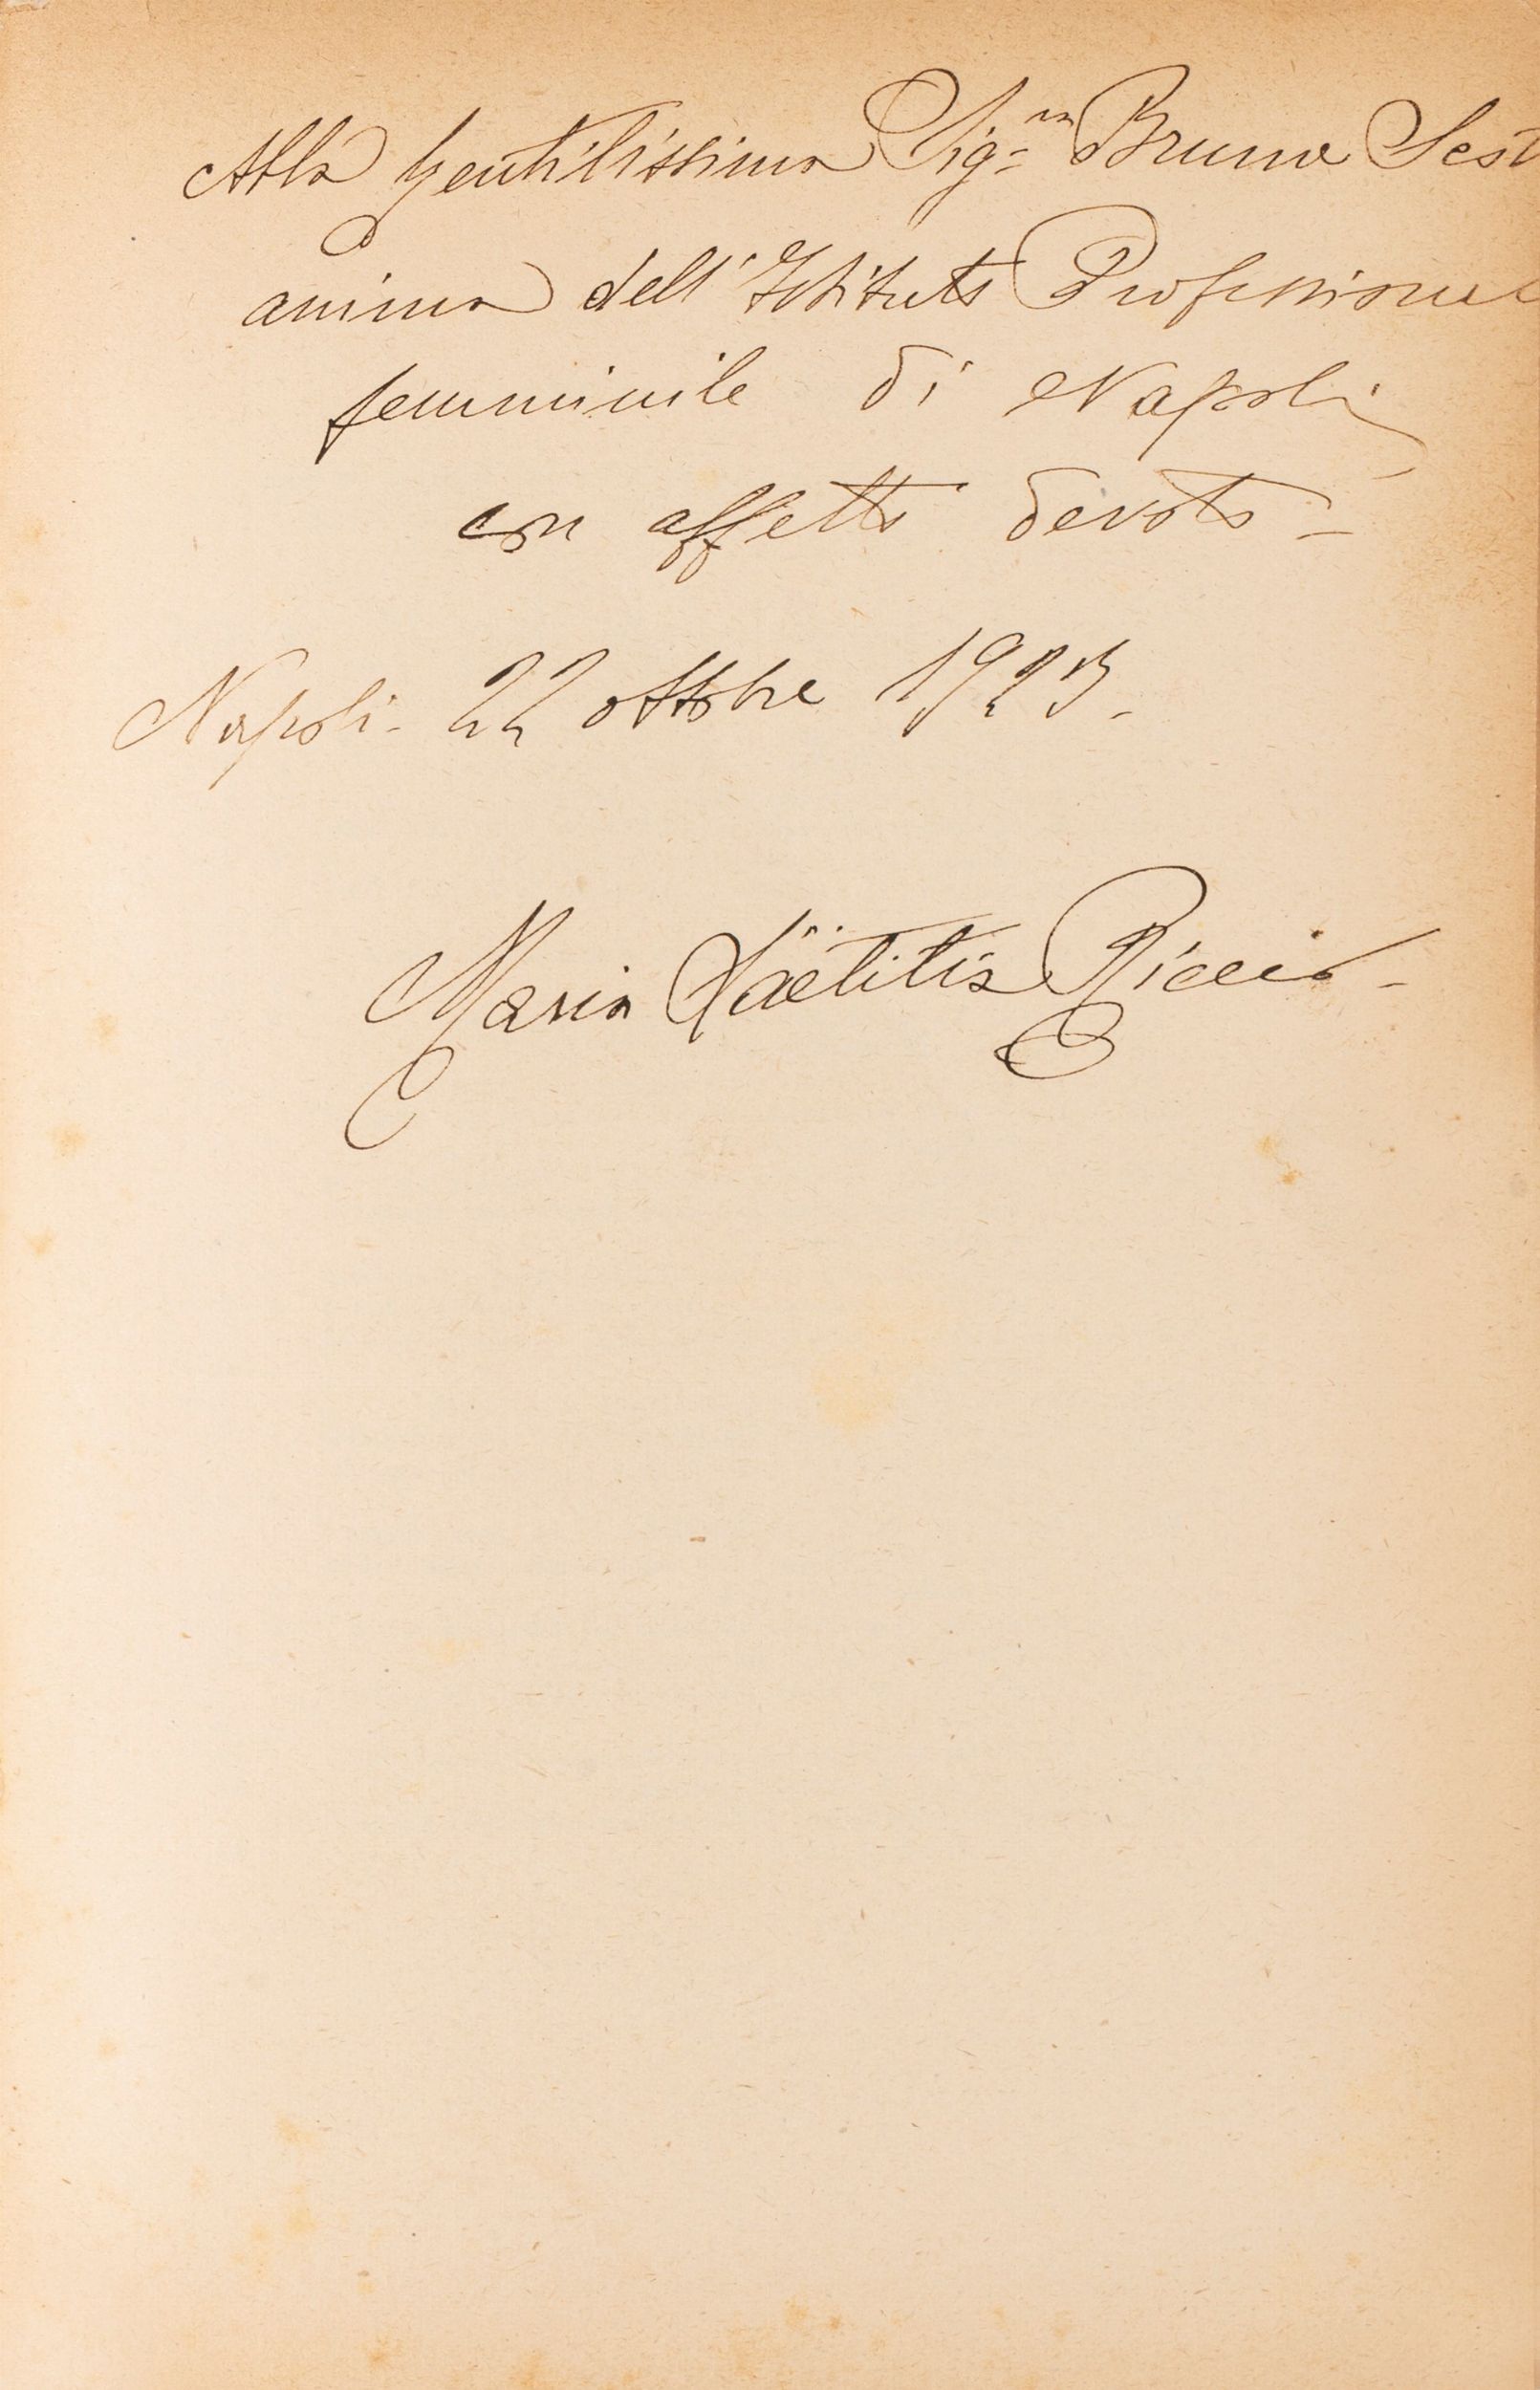 Alla gentilissima Sig.ra Bruno Sest
anima dell'Istituto Professionale
femminile di Napoli,
con affetto devoto -
Napoli - 22 ottobre 1923 -
Maria Laëtitia Riccio -